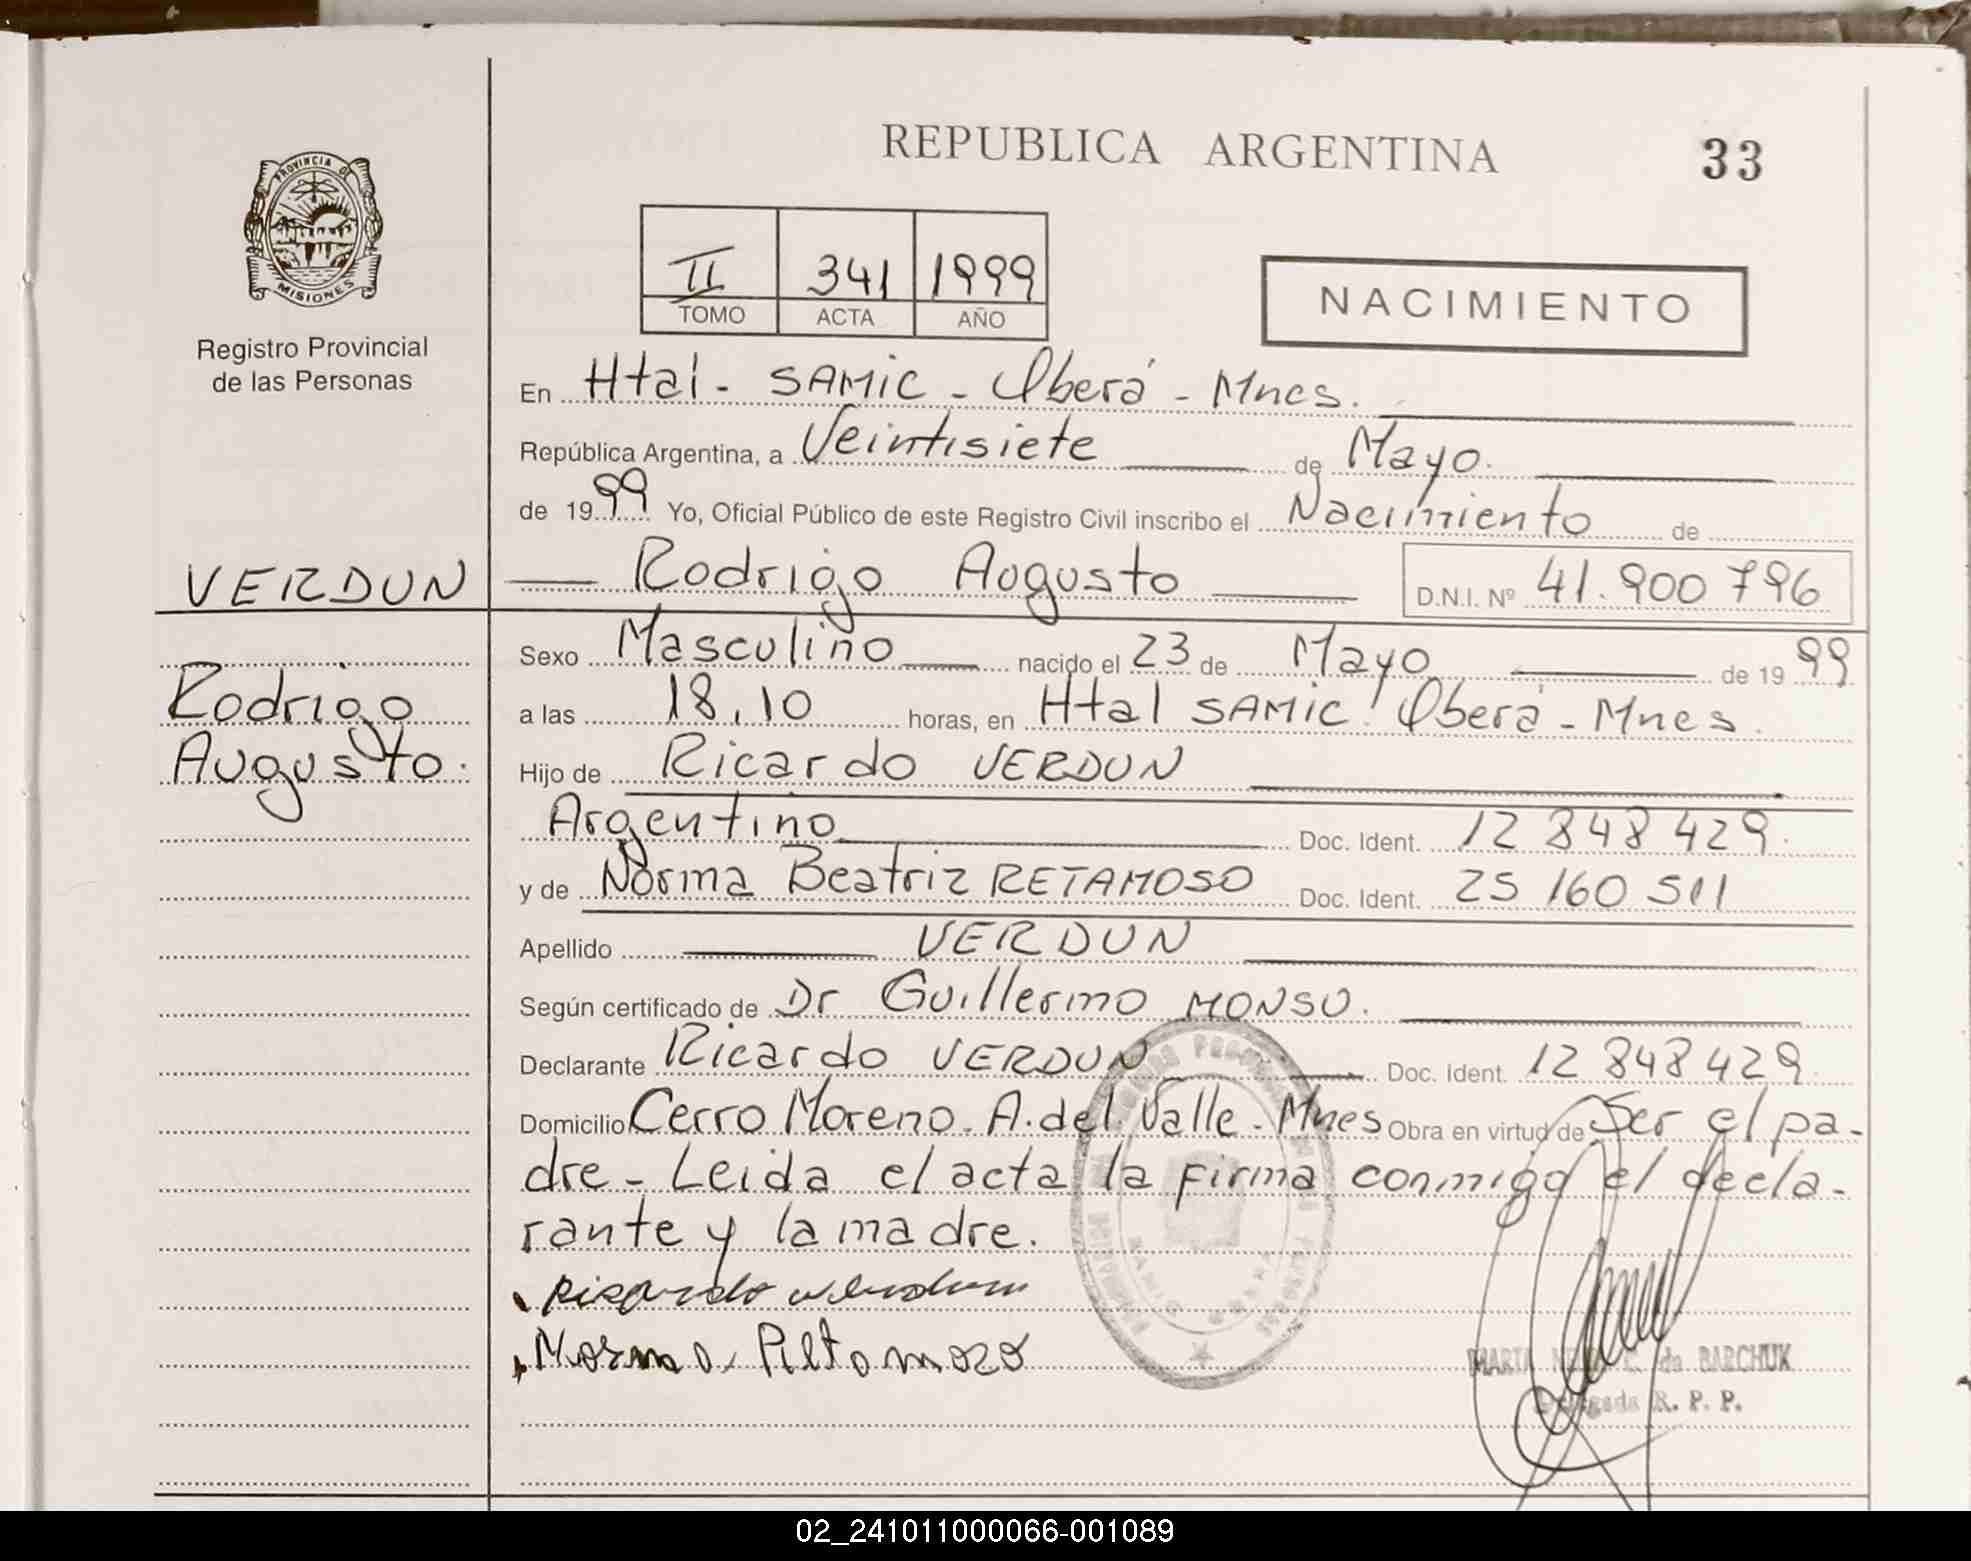 REPUBLICA ARGENTINA
33
PROVINCIA DE
MISIONES
Registro Provincial
de las Personas
II 341 1999
TOMO ACTA AÑO
NACIMIENTO
En Htal - SAMIC - Oberá - Mnes.
República Argentina, a Veintisiete de Mayo.
de 1999 Yo, Oficial Público de este Registro Civil inscribo el Nacimiento de
VERDUN
Rodrigo Augusto D.N.I. Nº 41.900 796
Sexo Masculino nacido el 23 de Mayo de 1999
Rodrigo
a las 18,10 horas, en Htal SAMIC Oberá - Mnes
Augusto.
Hijo de Ricardo VERDUN
Argentino Doc. Ident. 12 848 429.
y de Norma Beatriz RETAMOSO Doc. Ident. 25 160 511
Apellido VERDUN
Según certificado de Dr Guillermo MONSU.
Declarante Ricardo VERDUN Doc. Ident. 12 848 429
Domicilio Cerro Moreno. A. del Valle - Mnes Obra en virtud de Ser el pa-
dre - Leida el acta la firma conmigo el decla-
rante y la madre.
Norma Retamozo
MARTA de BARCHUK
Delegada R. P. P.
02_241011000066-001089